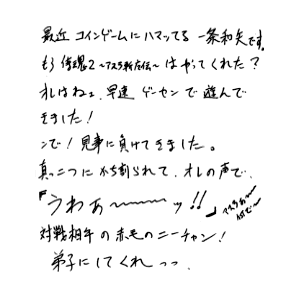 最近 コインゲームにハマッてる 一条和矢です。
もう 侍魂2 〜アスラ斬魔伝〜 はやってくれた？
オレはねェ、早速 ゲーセン で 遊んで
きました！
ンで！ 見事に 負けてきました。
真っ二つに かち割られて、オレの声で、
『うわぁ〜〜〜ッ!!』 アスラぁ〜
対戦相手 の 赤毛のニーチャン！
弟子に してくれっっ.